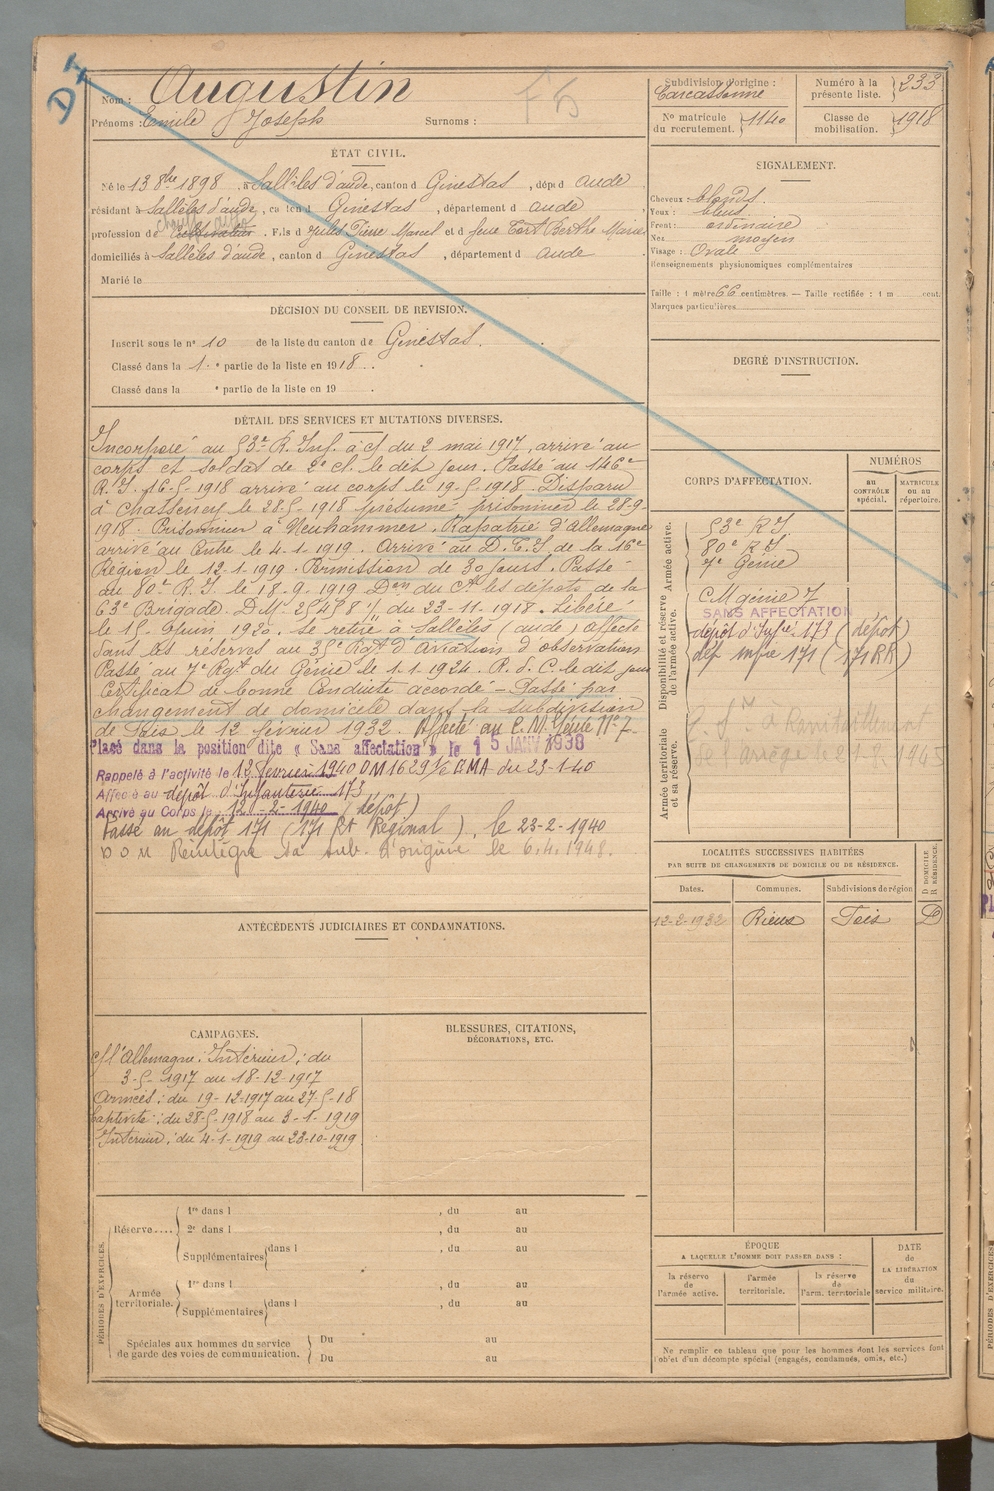 D I
Nom : Augustin
Prénoms : Emile Joseph Surnoms :
F 5
Subdivision d'origine :
Carcassonne
Numéro à la
présente liste. } 233
N° matricule
du recrutement. } 1140
Classe de
mobilisation. } 1918
ÉTAT CIVIL.
Né le 13 8bre 1898, à Sallèles d'aude, canton d Ginestas, dépt d aude
résidant à Sallèles d'aude, canton d Ginestas, département d aude
profession de Cultivateur chauff. auto. Fils d Jules Pierre Marcel et d feue Tort Berthe Marie
domiciliés à Sallèles d'aude, canton d Ginestas, département d aude
Marié le
SIGNALEMENT.
Cheveux blonds.
Yeux : bleus
Front : ordinaire
Nez moyen
Visage : Ovale
Renseignements physionomiques complémentaires
Taille : 1 mètre 66 centimètres. — Taille rectifiée : 1 m cent.
Marques particulières
DÉCISION DU CONSEIL DE REVISION.
Inscrit sous le n° 10 de la liste du canton de Ginestas.
Classé dans la 1.e partie de la liste en 1918.
Classé dans la e partie de la liste en 19 .
DEGRÉ D'INSTRUCTION.
DÉTAIL DES SERVICES ET MUTATIONS DIVERSES.
Incorporé au 53e R. Inf. à cf du 2 mai 1917, arrivé au
corps et soldat de 2e cl. le dit jour. Passé au 146e
R. I. 16-5-1918 arrivé au corps le 19-5-1918. Disparu
à Chassemy le 28-5-1918 présumé prisonnier le 28-9-
1918. Prisonnier à Neuhammer. Rapatrié d'Allemagne
arrivé au Centre le 4-1-1919. Arrivé au D.T.I. de la 16e
Région le 12-1-1919. Permission de 30 jours. Passé
au 80e R. I. le 18-9-1919. Don du Ct les dépôts de la
63e Brigade. D.M. 25458 du 23-11-1918. Libéré
le 15 Juin 1920, se retire à Sallèles (aude) affecté
dans les réserves au 35e Rgt d'Aviation d'observation
Passé au 7e Rgt du Génie le 1.1.1924. P. d. C. le dit jour
Certificat de bonne Conduite accordé — Passé par
changement de domicile dans la subdivision
de Foix le 12 février 1932. Affecté au C.M. Génie N°7
Plasé dans la position dite « Sans affectation » le 15 JANV 1938
Rappelé à l'activité le 12 février 1940 OM 1629 GMA du 23-1-40
Affecté au dépôt d'Infanterie 173
Arrivé au Corps le 12-2-1940 (dépôt)
Passé au dépôt 171 (171 Rt Régional), le 23-2-1940
Réintégre sa sub. d'origine le 6.4.1948.
CORPS D'AFFECTATION.
NUMÉROS
au
CONTRÔLE
spécial.
MATRICULE
ou au
répertoire.
Armée active.
53e R I
80e R I
7e Génie
Disponibilité et réserve
de l'armée active.
C M génie 7
SANS AFFECTATION
dépôt d'Infie 173 (dépôt)
dép infie 171 (171 RR)
Armée territoriale
et sa réserve.
à Ravitaillement
de l'ariège le 1.8.1945
LOCALITÉS SUCCESSIVES HABITÉES
PAR SUITE DE CHANGEMENTS DE DOMICILE OU DE RÉSIDENCE.
D DOMICILE
R RÉSIDENCE.
Dates. Communes. Subdivisions de région
12-2-1932 Rieux Foix D
ANTÉCÉDENTS JUDICIAIRES ET CONDAMNATIONS.
CAMPAGNES.
c/ l'Allemagne : Intérieur ; du
3-5-1917 au 18-12-1917
Armées ; du 19-12-1917 au 27-5-18
Captivité ; du 28-5-1918 au 3-1-1919
Intérieur ; du 4-1-1919 au 23-10-1919
BLESSURES, CITATIONS,
DÉCORATIONS, ETC.
PÉRIODES D'EXERCICES.
Réserve.... 1re dans l , du au
2e dans l , du au
Supplémentaires dans l , du au
Armée
territoriale. 1re dans l , du au
Supplémentaires dans l , du au
Spéciales aux hommes du service
de garde des voies de communication. Du au
Du au
ÉPOQUE
A LAQUELLE L'HOMME DOIT PASSER DANS :
la réserve
de
l'armée active.
l'armée
territoriale.
la réserve
de
l'arm. territoriale
DATE
de
LA LIBÉRATION
du
service militaire.
Ne remplir ce tableau que pour les hommes dont les services font
l'objet d'un décompte spécial (engagés, condamnés, omis, etc.)
PÉRIODES D'EXERCICES